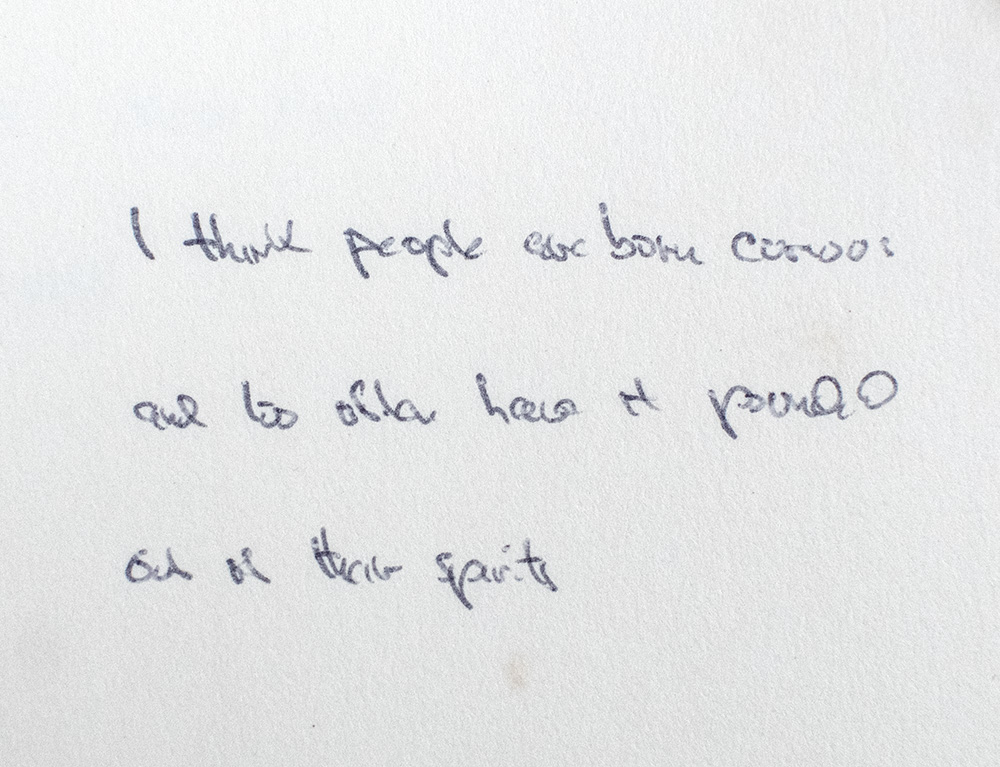 I think people are born curious
and too often have it pounded
out of their spirits